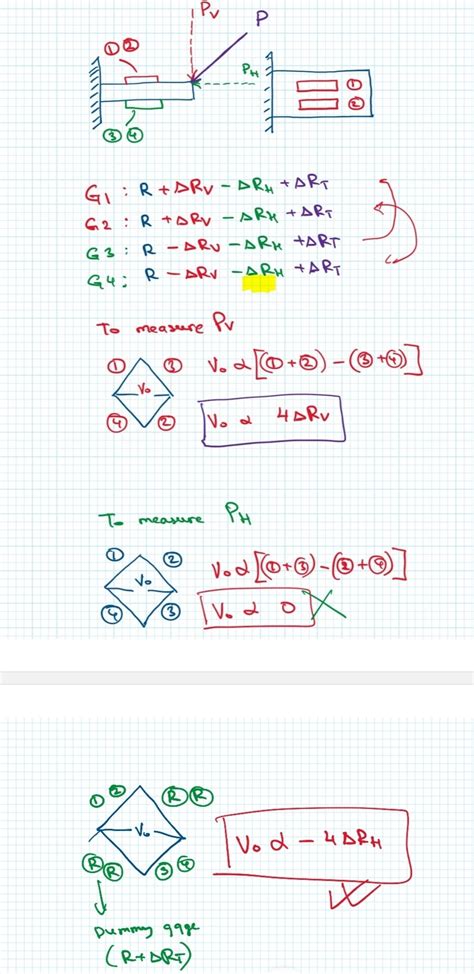 Pv
P
① ②
PH
①
②
③ ④
G1 : R + ΔRv - ΔRH + ΔRT
G2 : R + ΔRv - ΔRH + ΔRT
G3 : R - ΔRv - ΔRH + ΔRT
G4 : R - ΔRv - ΔRH + ΔRT
To measure Pv
① ③
Vo
④ ②
Vo α [(①+②) - (③+④)]
Vo α 4ΔRv
To measure PH
① ②
Vo
④ ③
Vo α [(①+③) - (②+④)]
Vo α 0
① ② R R
Vo
R R ③ ④
Vo α - 4ΔRH
Dummy gage
(R+ΔRT)